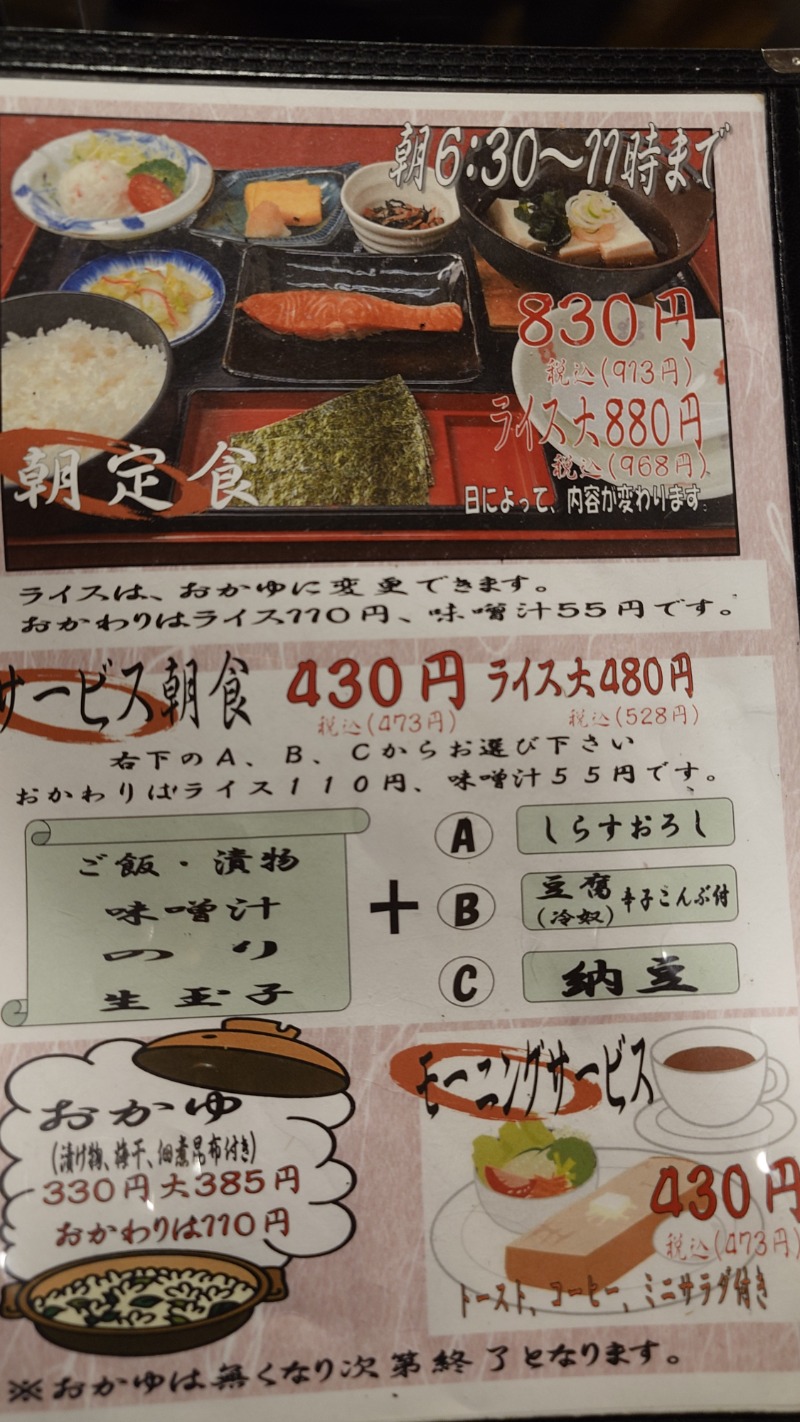 朝6:30～11時まで
830円
税込(913円)
ライス大880円
税込(968円)
朝定食
日によって、内容が変わります
ライスは、おかゆに変更できます。
おかわりはライス110円、味噌汁55円です。
サービス朝食 430円 ライス大480円
税込(473円) 税込(528円)
右下のA、B、Cからお選び下さい
おかわりはライス110円、味噌汁55円です。
ご飯・漬物
味噌汁
のり
生玉子
＋
A しらすおろし
B 豆腐(冷奴) 辛子こんぶ付
C 納豆
おかゆ
(漬け物、梅干、佃煮昆布付き)
330円 大385円
おかわりは110円
モーニングサービス
430円
税込(473円)
トースト、コーヒー、ミニサラダ付き
※おかゆは無くなり次第終了となります。